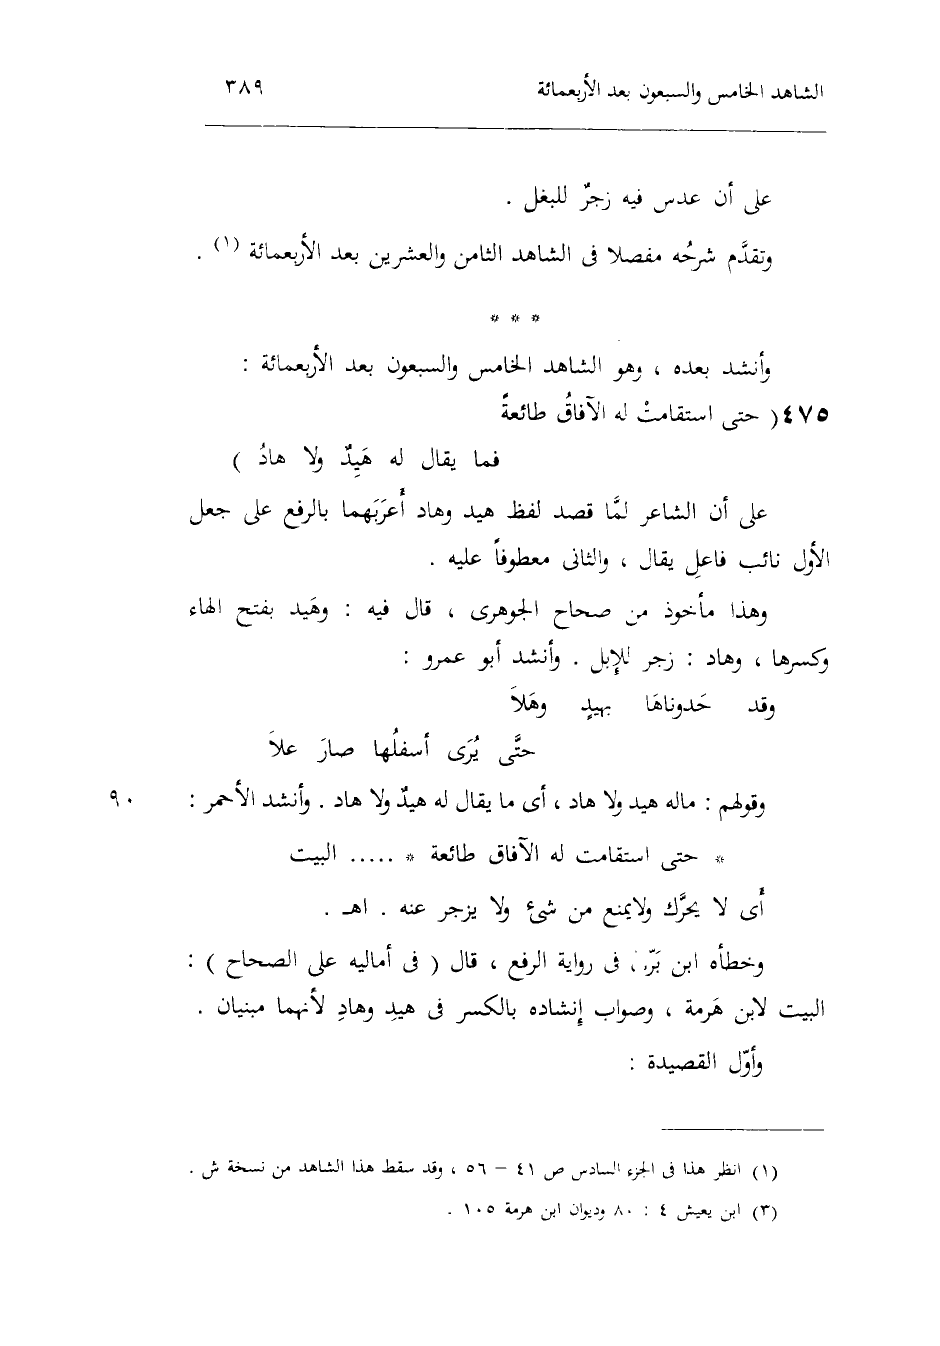 الشاهد الخامس والسبعون بعد الأربعمائة ٣٨٩
على أن عدس فيه زجرٌ للبغل .
وتقدَّم شرحُه مفصلا فى الشاهد الثامن والعشرين بعد الأربعمائة (١) .
* * *
وأنشد بعده ، وهو الشاهد الخامس والسبعون بعد الأربعمائة :
٤٧٥ ( حتى استقامتْ له الآفاقُ طائعةً
فما يقال له هَيِدٌ ولا هادُ )
على أن الشاعر لمَّا قصد لفظ هيد وهاد أَعرَبَهما بالرفع على جعل
الأول نائب فاعلِ يقال ، والثانى معطوفاً عليه .
وهذا مأخوذ من صحاح الجوهرى ، قال فيه : وهَيد بفتح الهاء
وكسرها ، وهاد : زجر للإبل . وأنشد أبو عمرو :
وقد حَدوناهَا بهيدٍ وهَلاَ
حتَّى يُرَى أسفلُها صارَ علاَ
وقولهم : ماله هيد ولا هاد ، أى ما يقال له هيدٌ ولا هاد . وأنشد الأحمر : ٩٠
* حتى استقامت له الآفاق طائعة * ..... البيت
أى لا يحرَّك ولايمنع من شىء ولا يزجر عنه . اهـ .
وخطأه ابن بَرّى ، فى رواية الرفع ، قال ( فى أماليه على الصحاح ) :
البيت لابن هَرمة ، وصواب إنشاده بالكسر فى هيدِ وهادِ لأنهما مبنيان .
وأوّل القصيدة :
(١) انظر هذا فى الجزء السادس ص ٤١ – ٥٦ ، وقد سقط هذا الشاهد من نسخة ش .
(٣) ابن يعيش ٤ : ٨٠ وديوان ابن هرمة ١٠٥ .